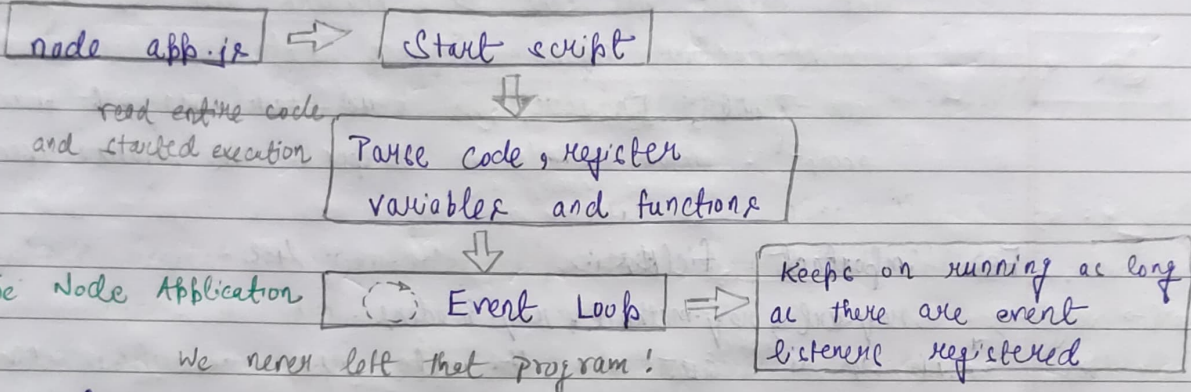 node app.js
Start script
read entire code
and started execation
Parse code, register
variables and functions
Node Application
Event Loop
Keeps on running as long
as there are event
listeners registered
We never left that program!